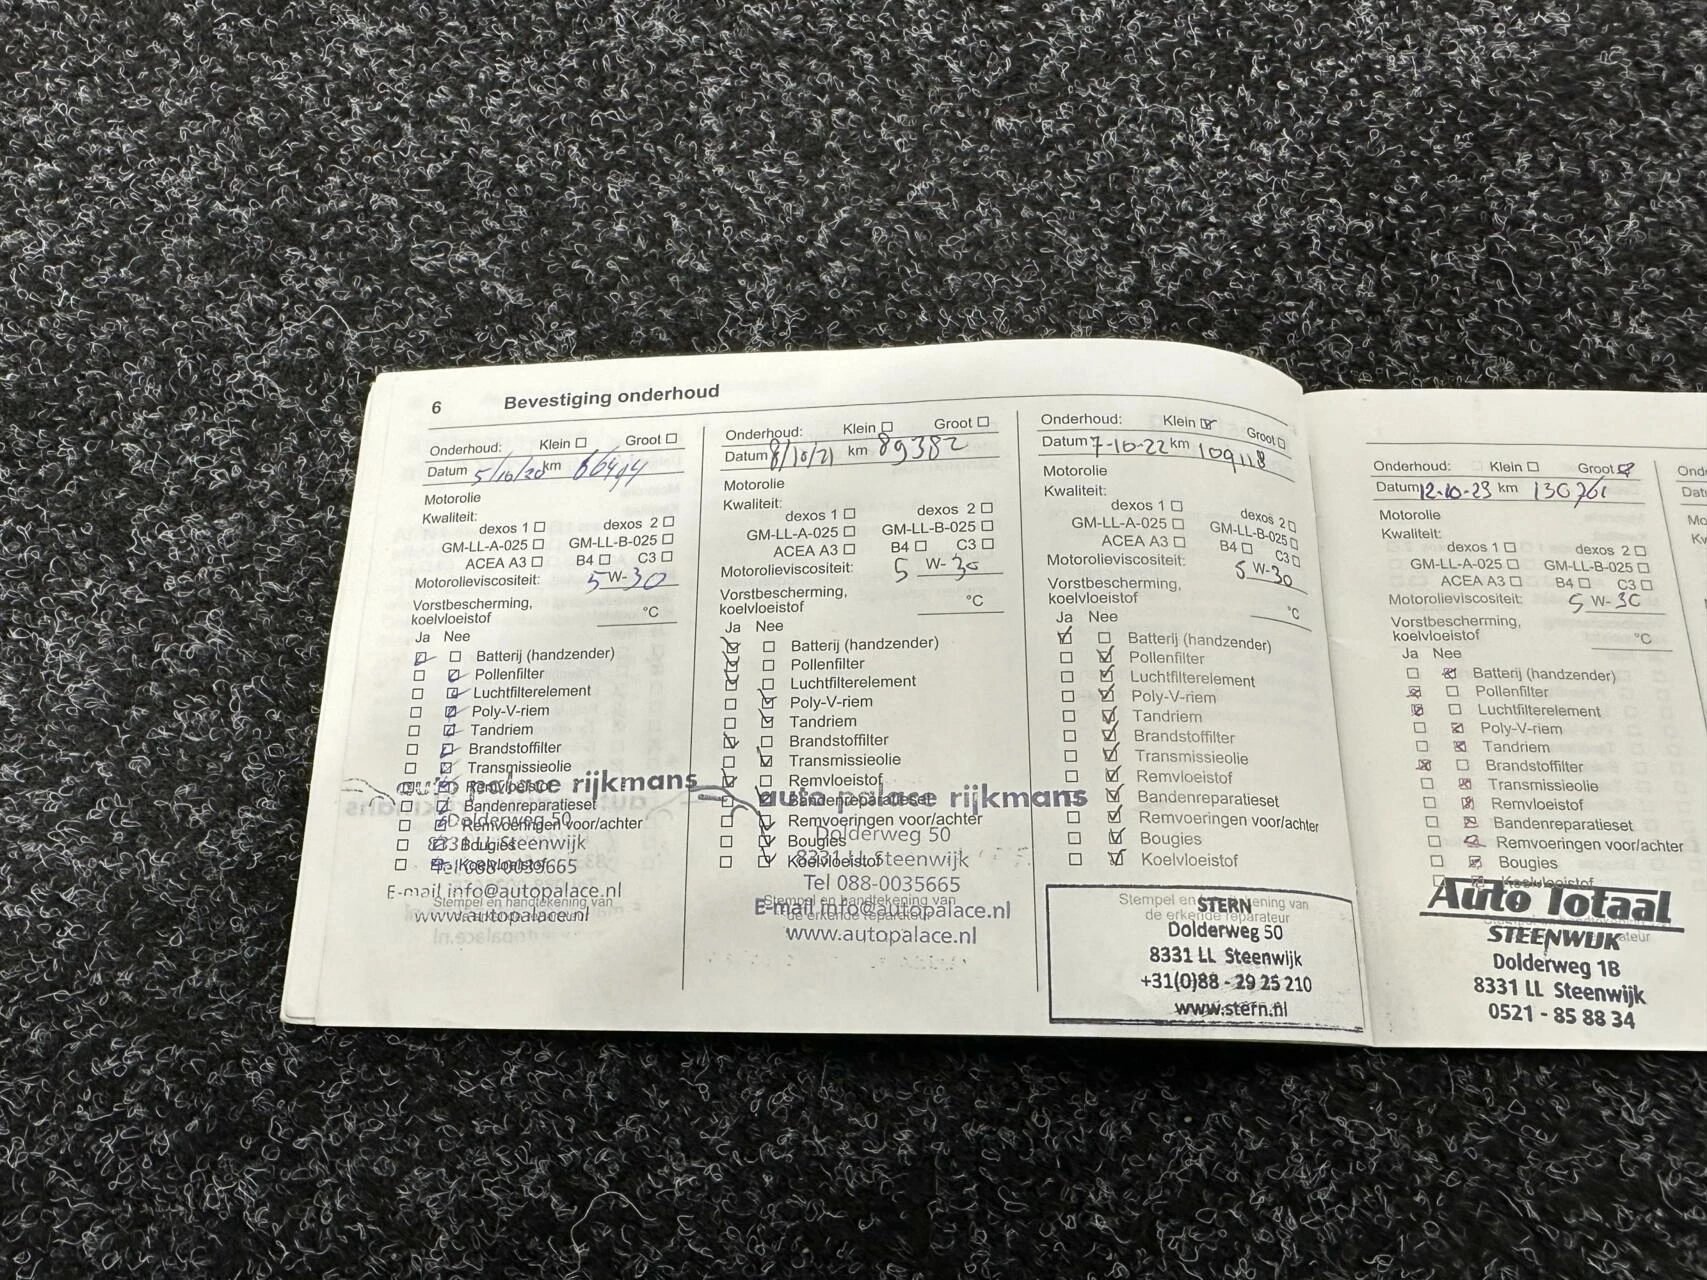 6 Bevestiging onderhoud
Onderhoud: Klein Groot
Datum 5/10/20 km
Motorolie
Kwaliteit:
dexos 1 dexos 2
GM-LL-A-025 GM-LL-B-025
ACEA A3 B4 C3
Motorolieviscositeit: 5 W-30
Vorstbescherming,
koelvloeistof °C
Ja Nee
Batterij (handzender)
Pollenfilter
Luchtfilterelement
Poly-V-riem
Tandriem
Brandstoffilter
Transmissieolie
Remvloeistof
auto palace rijkmans
Bandenreparatieset
Dolderweg 50
Remvoeringen voor/achter
8331 LL Steenwijk
Bougies
Koelvloeistof
Tel 088-0035665
E-mail info@autopalace.nl
Stempel en handtekening van
www.autopalace.nl
Onderhoud: Klein Groot
Datum 8/10/21 km 89382
Motorolie
Kwaliteit:
dexos 1 dexos 2
GM-LL-A-025 GM-LL-B-025
ACEA A3 B4 C3
Motorolieviscositeit: 5 W-30
Vorstbescherming,
koelvloeistof °C
Ja Nee
Batterij (handzender)
Pollenfilter
Luchtfilterelement
Poly-V-riem
Tandriem
Brandstoffilter
Transmissieolie
Remvloeistof
Bandenreparatieset
auto palace rijkmans
Remvoeringen voor/achter
Dolderweg 50
Bougies
Koelvloeistof
8331 LL Steenwijk
Tel 088-0035665
Stempel en handtekening van
E-mail info@autopalace.nl
de erkende reparateur
www.autopalace.nl
Onderhoud: Klein Groot
Datum 7-10-22 km 109118
Motorolie
Kwaliteit:
dexos 1 dexos 2
GM-LL-A-025 GM-LL-B-025
ACEA A3 B4 C3
Motorolieviscositeit: 5 W-30
Vorstbescherming,
koelvloeistof °C
Ja Nee
Batterij (handzender)
Pollenfilter
Luchtfilterelement
Poly-V-riem
Tandriem
Brandstoffilter
Transmissieolie
Remvloeistof
Bandenreparatieset
Remvoeringen voor/achter
Bougies
Koelvloeistof
Stempel en handtekening van
STERN
de erkende reparateur
Dolderweg 50
8331 LL Steenwijk
+31(0)88 - 29 25 210
www.stern.nl
Onderhoud: Klein Groot
Datum 12-10-23 km 130761
Motorolie
Kwaliteit:
dexos 1 dexos 2
GM-LL-A-025 GM-LL-B-025
ACEA A3 B4 C3
Motorolieviscositeit: 5 W-30
Vorstbescherming,
koelvloeistof °C
Ja Nee
Batterij (handzender)
Pollenfilter
Luchtfilterelement
Poly-V-riem
Tandriem
Brandstoffilter
Transmissieolie
Remvloeistof
Bandenreparatieset
Remvoeringen voor/achter
Bougies
Koelvloeistof
Auto Totaal
STEENWIJK
Dolderweg 1B
8331 LL Steenwijk
0521 - 85 88 34